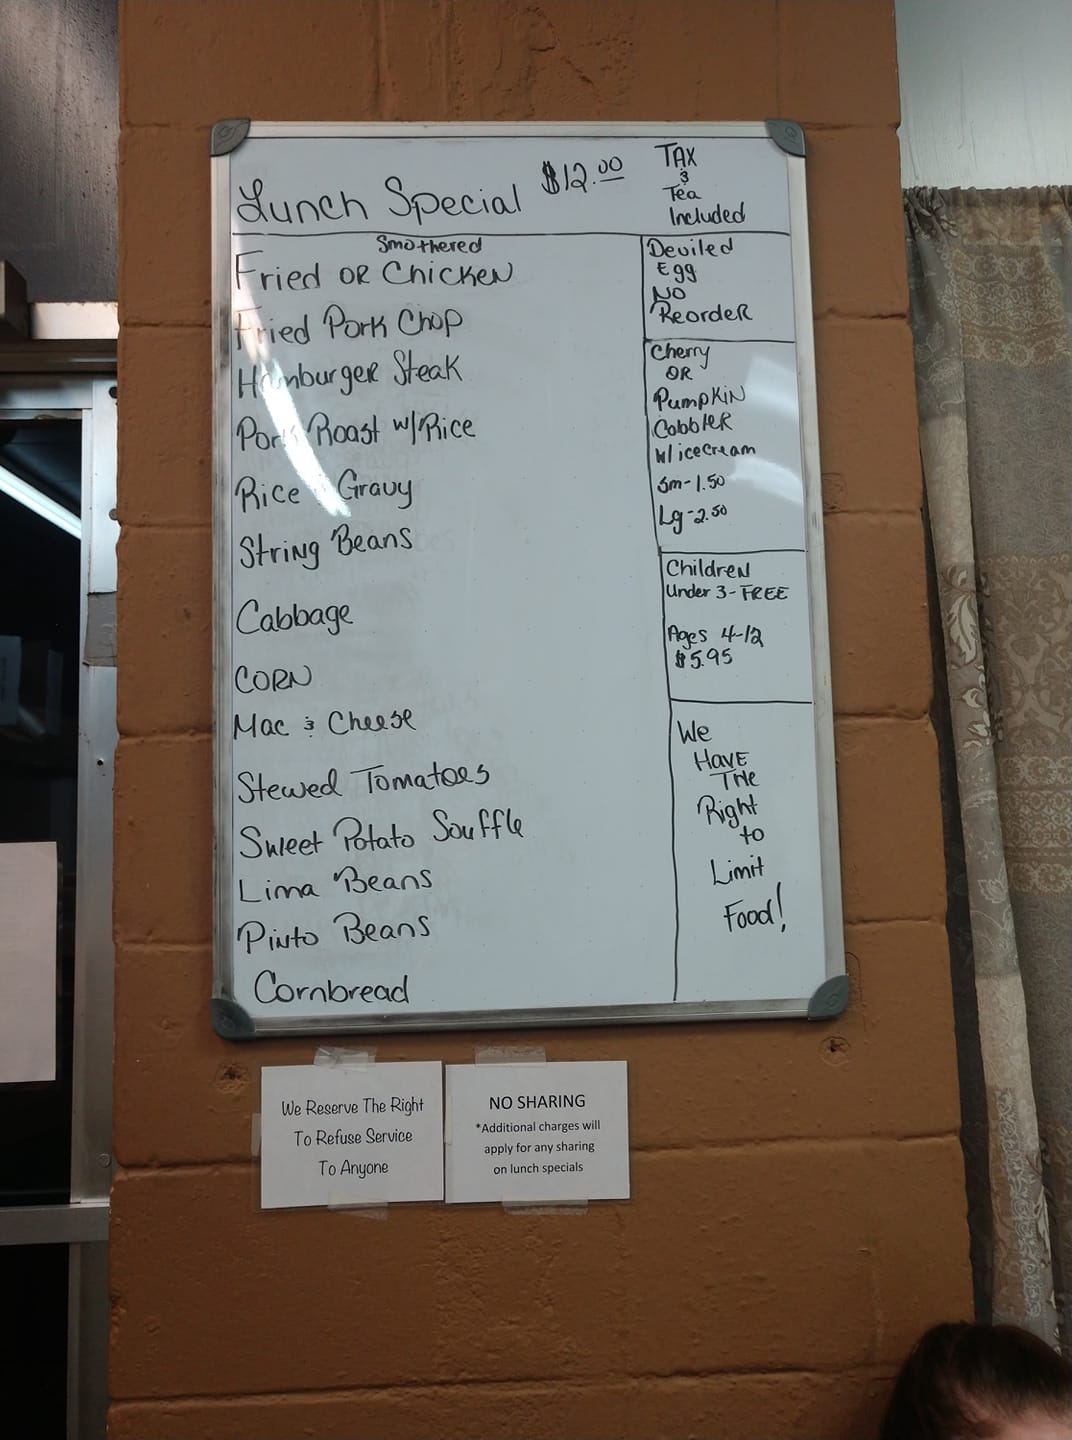 Lunch Special $12.00
TAX
&
Tea
Included
Smothered
Fried OR Chicken
Fried Pork Chop
Hamburger Steak
Pork Roast w/Rice
Rice & Gravy
String Beans
Cabbage
CORN
Mac & Cheese
Stewed Tomatoes
Sweet Potato Souffle
Lima Beans
Pinto Beans
Cornbread
Deviled
Egg
NO
Reorder
Cherry
OR
Pumpkin
Cobbler
w/icecream
Sm-1.50
Lg-2.50
Children
Under 3-FREE
Ages 4-12
$5.95
We
HAVE
THE
Right
to
Limit
Food!
We Reserve The Right
To Refuse Service
To Anyone
NO SHARING
*Additional charges will
apply for any sharing
on lunch specials